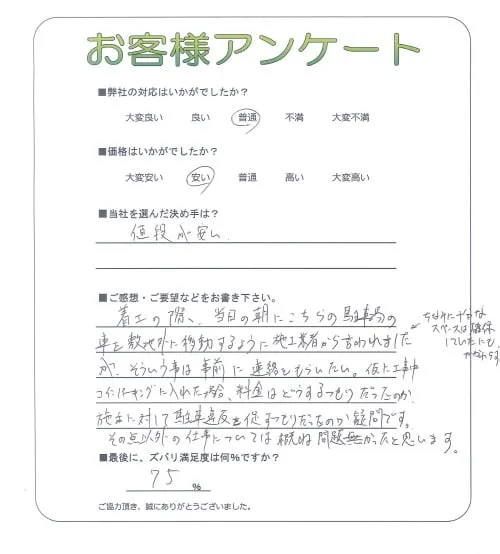 お客様アンケート
■弊社の対応はいかがでしたか？
大変良い 良い 普通 不満 大変不満
■価格はいかがでしたか？
大変安い 安い 普通 高い 大変高い
■当社を選んだ決め手は？
値段が安い
■ご感想・ご要望などをお書き下さい。
着工の際、当日の朝にこちらの駐車場の
車を敷地外に移動するように施工業者から言われました
が、そういう事は事前に連絡をもらいたい。仮に工事中
コインパーキングに入れた場合、料金はどうするつもりだったのか、
施主に対して駐車違反を促すつもりだったのか疑問です。
その点以外の仕事については概ね問題無かったと思います。
ちなみに十分な
スペースは確保
していたにも
かかわらず
■最後に、ズバリ満足度は何％ですか？
75 ％
ご協力頂き、誠にありがとうございました。